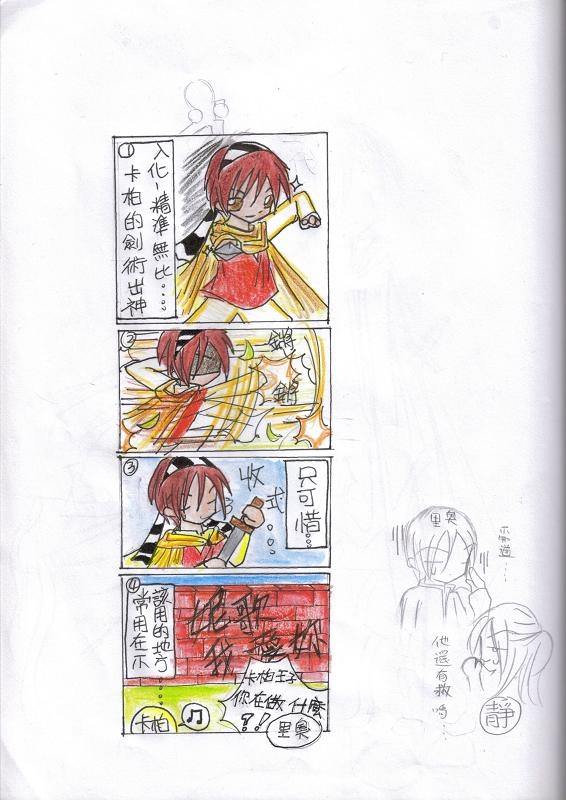 ①
卡柏的劍術出神
入化，精準無比....
②
鏘
鏘
③
只可惜...
收式....
④
常用在不
該用的地方....
妮歌
我愛妳
卡柏王子
你在做什麼
?!!
卡柏
里奧
里奧
不知道...
他還有救嗎...
靜